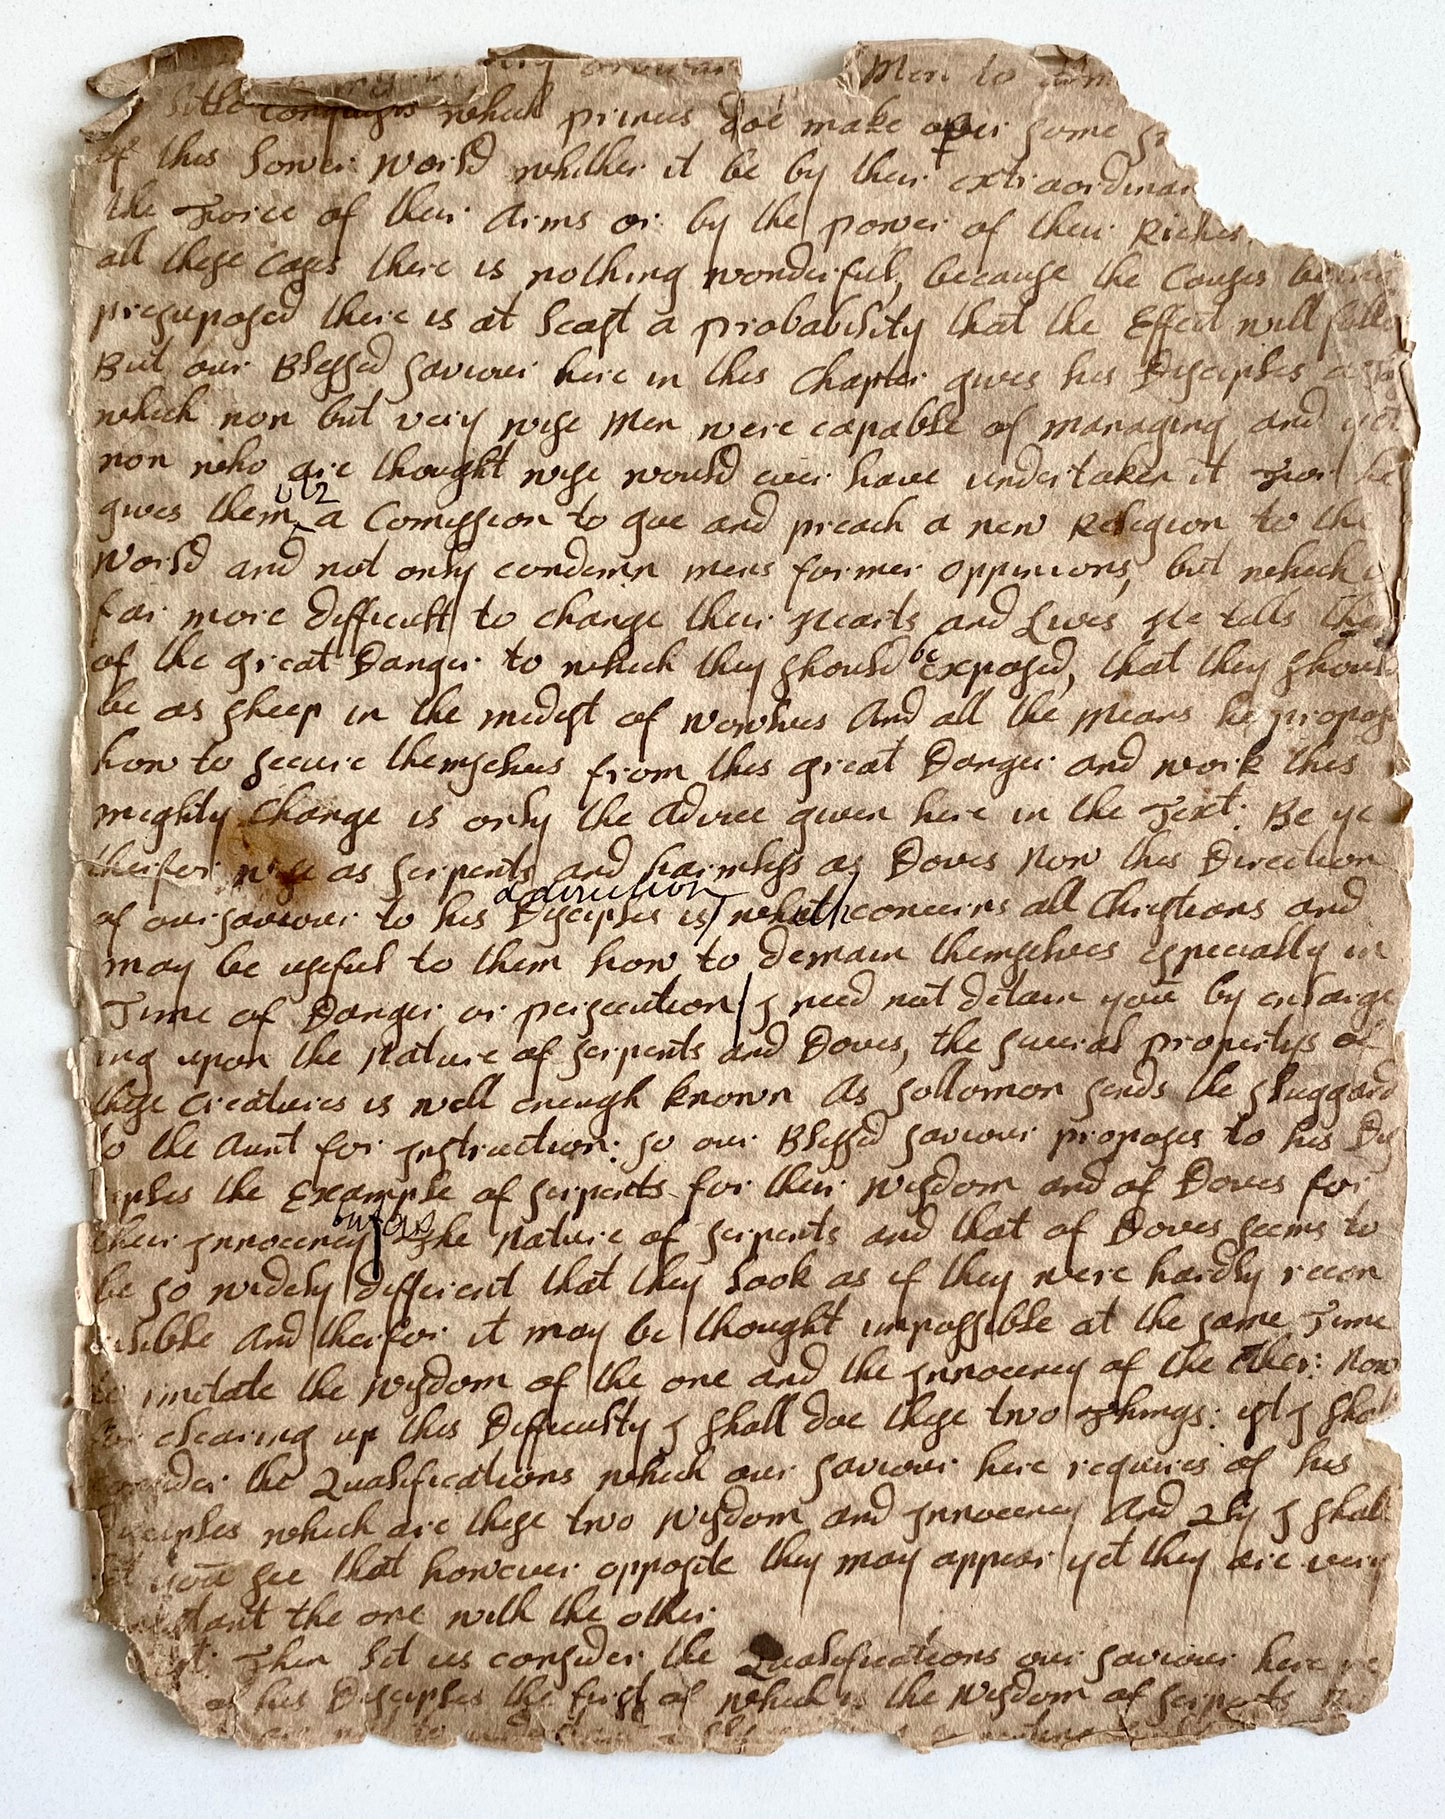 Men to
little conquests which princes doe make over some
of this Lower World whither it be by their extraordinar
the Force of their Arms or by the power of their Riches
all these cases there is nothing wonderful, because the Causes being
presuposed there is at least a probability that the Effect will follo
But our Blessed Saviour here in this Chapter gives his Disciples a
which non but very wise Men were capable of managing and yet
non who are thought wise would ever have undertaken it For he
viz
gives them a Comission to goe and preach a new Religion to the
World and not only condemn mens former oppinions, but which i
far more difficult to change their Hearts and Lives He tells them
of the great Danger to which they should be exposed, that they should
be as sheep in the midest of Wowlves And all the Means he propos
how to secure themselves from this great Danger and work this
mighty Change is only the Advice given here in the Text: Be ye
therfor wise as serpents and harmless as Doves Now this Direction
a direction
of our Saviour to his Disciples is which concerns all Christians and
may be useful to them how to demain themselves especially in
Time of Danger or persecution I need not detain you by enlarge
ing upon the Nature of Serpents and Doves, the several propertys of
these creatures is well enough known As Sollomon sends the Sluggard
to the Aunt for Instruction: So our Blessed Saviour proposes to his Dis
iples the Example of Serpents for their Wisdom and of Doves for
their Innocency The Nature of Serpents and that of Doves seems to
be so widely different that they look as if they were hardly recon
isible And therfor it may be thought impossible at the same Time
to imitate the Wisdom of the one and the Innocency of the other: Now
for clearing up this Difficulty I shall doe these two Things: 1st I shal
consider the Qualifications which our Saviour here requires of his
Disciples which are these two Wisdom and Innocency And 2ly I shall
let you see that however opposite they may appear yet they are very
sistant the one with the other
1st: Then let us consider the Qualifications our Saviour here re
of his Disciples the first of which is the Wisdom of Serpents